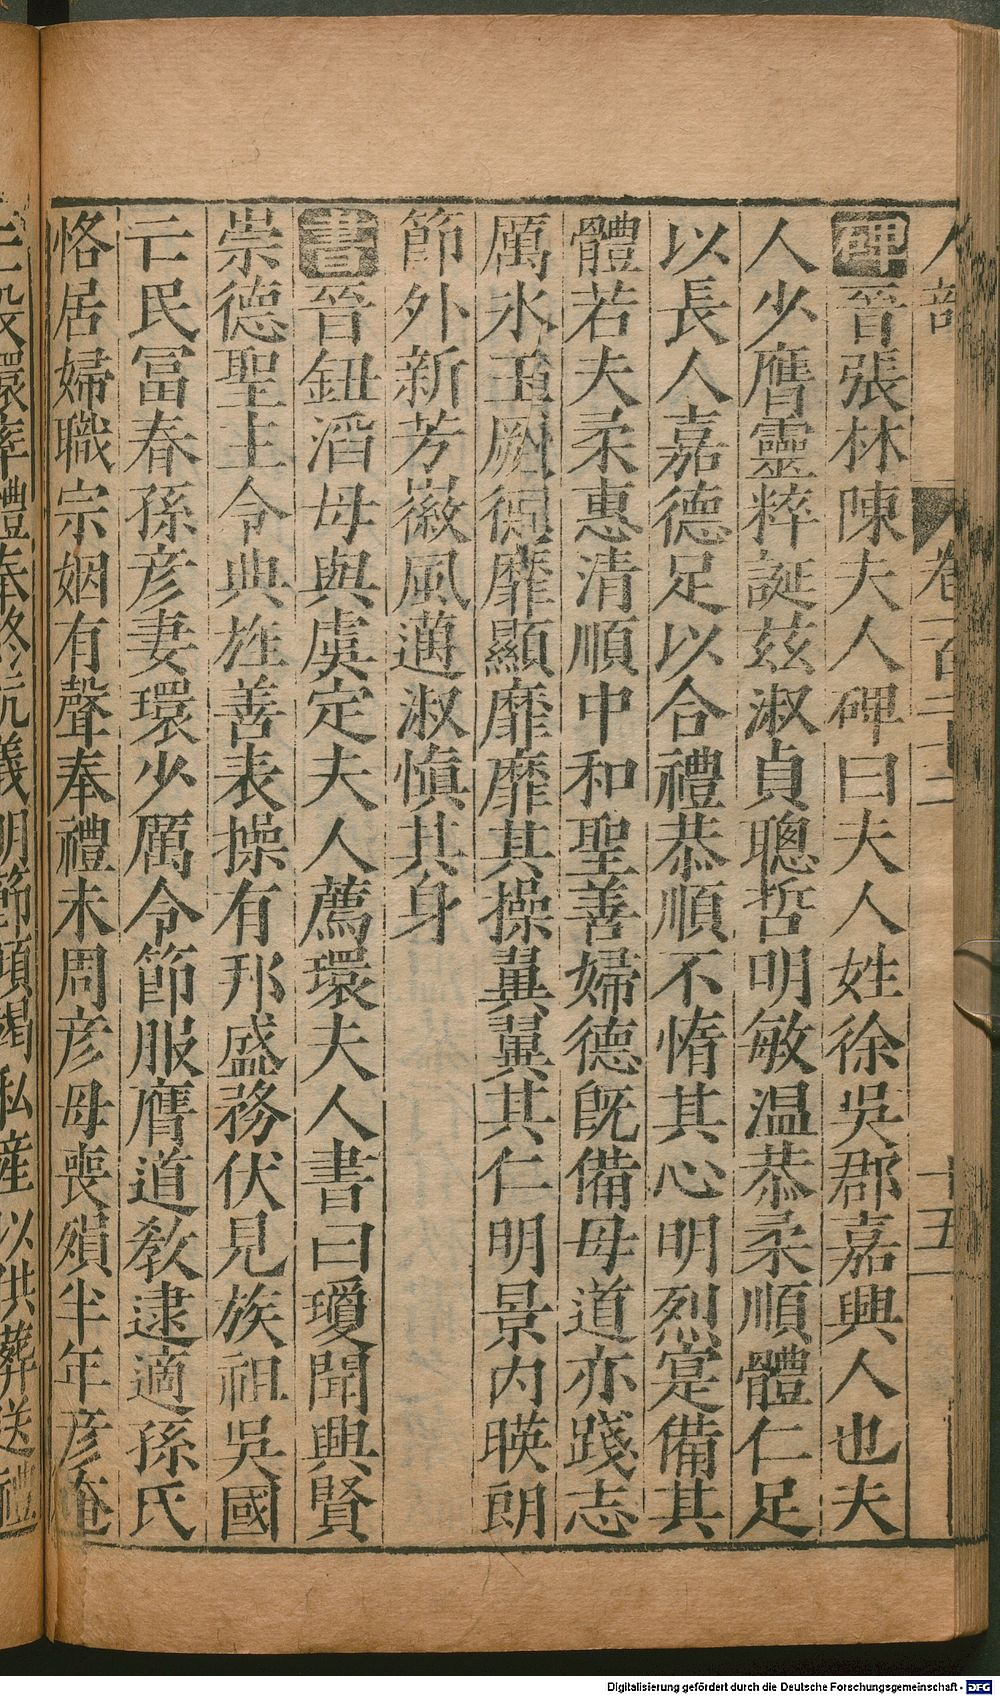 人部 卷一百二十二 十五
碑晉張林陳夫人碑曰夫人姓徐吳郡嘉興人也夫
人少膺靈粹誕茲淑貞聰哲明敏温恭柔順體仁足
以長人嘉德足以合禮恭順不惰其心明烈寔備其
體若夫柔惠清順中和聖善婦德旣備母道亦踐志
厲氷玉
靡顯靡靡其操翼翼其仁明景内暎朗
節外新芳徽風邁淑愼其身
書晉鈕滔母與虞定夫人薦環夫人書曰瓊聞興賢
崇德聖主令典旌善表操有邦盛務伏見族祖吳國
亡民冨春孫彦妻環少厲令節服膺道敎逮適孫氏
恪居婦職宗姻有聲奉禮未周彦母喪殞半年彦淹
亡殁環率禮奉終抗義明節傾竭私產以供葬送禮
Digitalisierung gefördert durch die Deutsche Forschungsgemeinschaft - DFG